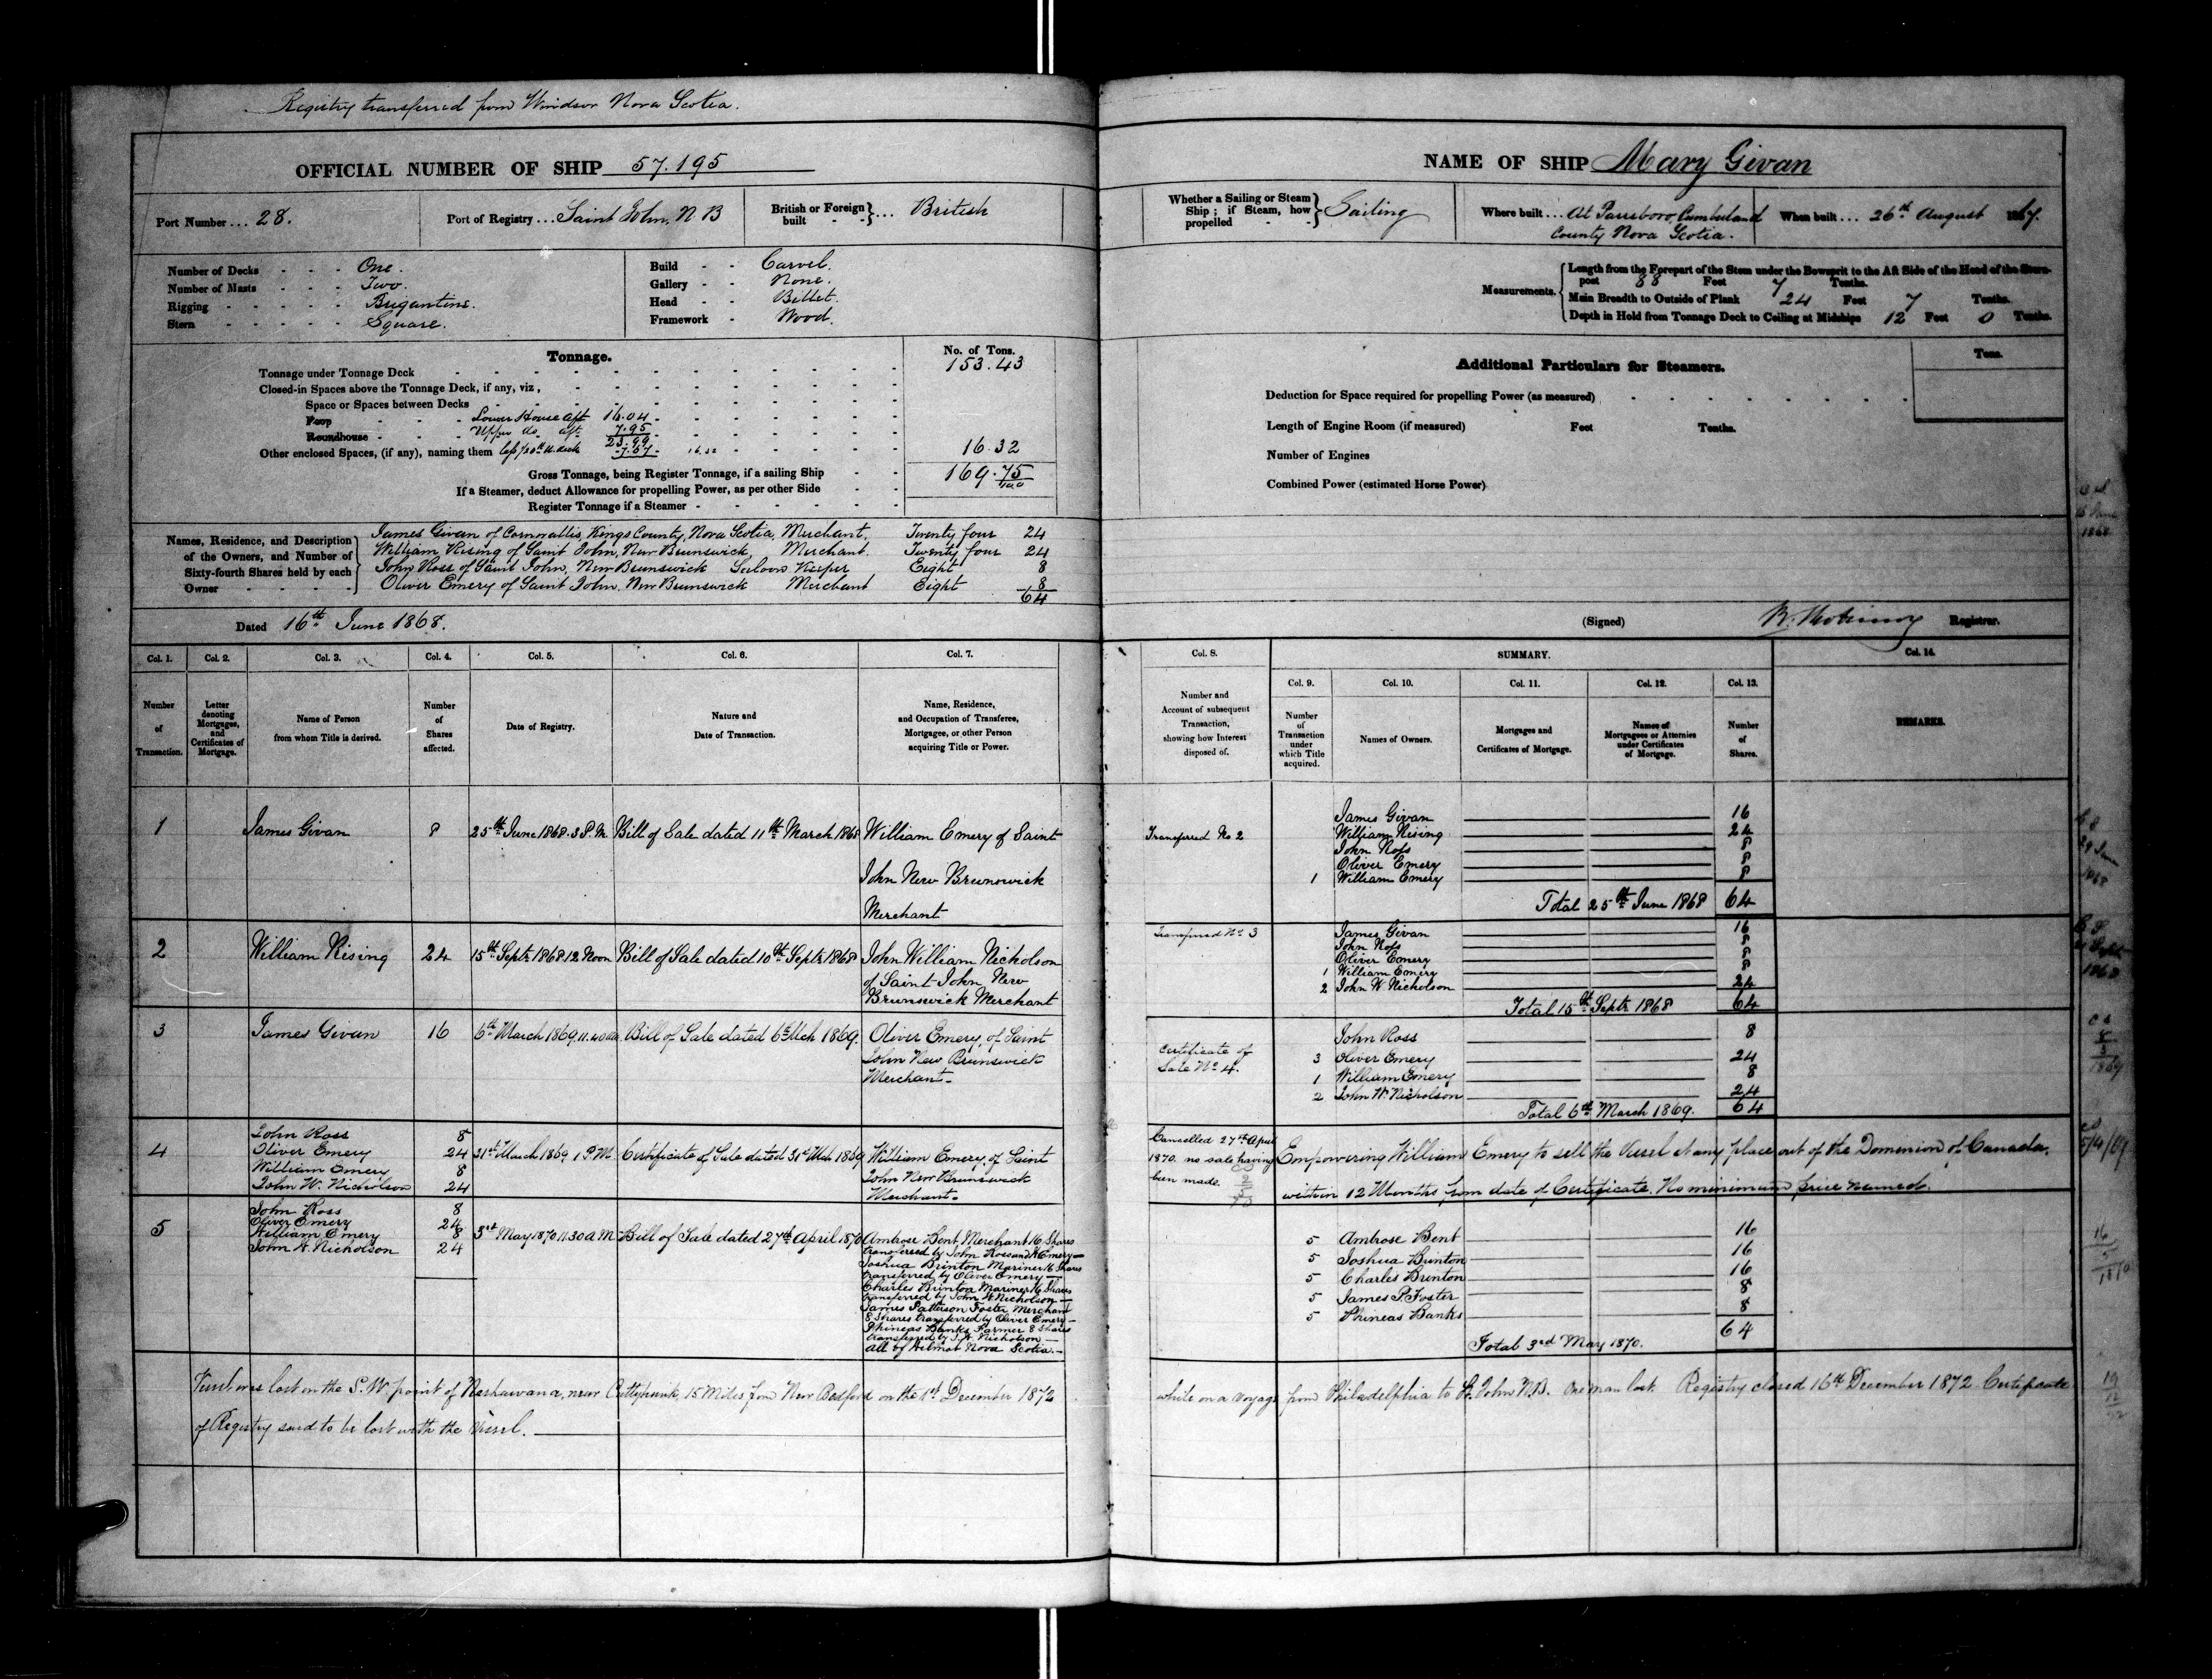 Registry transferred from Windsor Nova Scotia.
OFFICIAL NUMBER OF SHIP 57.195
Port Number ... 28.
Port of Registry ... Saint John, N B
British or Foreign built } ... British
Number of Decks - - - One.
Number of Masts - - - Two.
Rigging - - - - - Brigantine.
Stern - - - - - Square.
Build - - Carvel.
Gallery - - None.
Head - - Billet.
Framework - Wood.
Tonnage.
No. of Tons.
Tonnage under Tonnage Deck 153.43
Closed-in Spaces above the Tonnage Deck, if any, viz,
Space or Spaces between Decks
Poop - Lower House aft 16.04
Roundhouse - Upper do aft. 7.95
23.99
Other enclosed Spaces, (if any), naming them less 1/20th u. deck 7.67 16.32 16.32
Gross Tonnage, being Register Tonnage, if a sailing Ship 169.75/100
If a Steamer, deduct Allowance for propelling Power, as per other Side
Register Tonnage if a Steamer
Names, Residence, and Description of the Owners, and Number of Sixty-fourth Shares held by each Owner
James Givan of Cornwallis, Kings County, Nova Scotia, Merchant, Twenty four 24
William Rising of Saint John, New Brunswick, Merchant. Twenty four 24
John Ross of Saint John, New Brunswick Saloon Keeper Eight 8
Oliver Emery of Saint John, New Brunswick Merchant Eight 8
64
Dated 16th June 1868.
NAME OF SHIP Mary Givan
Whether a Sailing or Steam Ship; if Steam, how propelled } Sailing
Where built ... At Parrsboro, Cumberland
County Nova Scotia.
When built ... 26th August 1867.
Measurements.
Length from the Forepart of the Stem under the Bowsprit to the Aft Side of the Head of the Stern-
post 88 Feet 7 Tenths.
Main Breadth to Outside of Plank 24 Feet 7 Tenths.
Depth in Hold from Tonnage Deck to Ceiling at Midships 12 Feet 0 Tenths.
Additional Particulars for Steamers.
Tons.
Deduction for Space required for propelling Power (as measured)
Length of Engine Room (if measured) Feet Tenths.
Number of Engines
Combined Power (estimated Horse Power)
(Signed) Registrar.
Col. 1. Col. 2. Col. 3. Col. 4. Col. 5. Col. 6. Col. 7.
Number of Transaction.
Letter denoting Mortgages, and Certificates of Mortgage.
Name of Person from whom Title is derived.
Number of Shares affected.
Date of Registry.
Nature and Date of Transaction.
Name, Residence, and Occupation of Transferee, Mortgagee, or other Person acquiring Title or Power.
Col. 8. SUMMARY. Col. 14.
Col. 9. Col. 10. Col. 11. Col. 12. Col. 13.
Number and Account of subsequent Transaction, showing how Interest disposed of.
Number of Transaction under which Title acquired.
Names of Owners.
Mortgages and Certificates of Mortgage.
Names of Mortgagees or Attornies under Certificates of Mortgage.
Number of Shares.
REMARKS.
1 James Givan 8 25th June 1868. 3 P.M. Bill of Sale dated 11th March 1868 William Emery of Saint
John New Brunswick
Merchant
Transferred No 2
James Givan 16
William Rising 24
John Ross 8
Oliver Emery 8
1 William Emery 8
Total 25th June 1868 64
2 William Rising 24 15th Septr 1868 12 Noon Bill of Sale dated 10th Septr 1868 John William Nicholson
of Saint John New
Brunswick Merchant
Transferred No. 3
James Givan 16
John Ross 8
Oliver Emery 8
1 William Emery 8
2 John W. Nicholson 24
Total 15th Septr 1868 64
3 James Givan 16 6th March 1869, 11.40 AM. Bill of Sale dated 6th Mch 1869. Oliver Emery, of Saint
John New Brunswick
Merchant -
Certificate of
Sale No 4.
John Ross 8
3 Oliver Emery 24
1 William Emery 8
2 John W. Nicholson 24
Total 6th March 1869. 64
4 John Ross 8
Oliver Emery 24
William Emery 8
John W. Nicholson 24
31st March 1869 1 P.M. Certificate of Sale dated 31st Mch 1869 William Emery, of Saint
John New Brunswick
Merchant -
Cancelled 27th April
1870. no sale having
been made.
Empowering William Emery to sell the Vessel at any place out of the Dominion of Canada,
within 12 Months from date of Certificate. No minimum price named.
5 John Ross 8
Oliver Emery 24
William Emery 8
John W. Nicholson 24
3rd May 1870 11.30 A M Bill of Sale dated 27th April 1870 Ambrose Bent, Merchant 16 Shares
transferred by John Ross and W Emery -
Joshua Brinton Mariner 16 Shares
transferred by Oliver Emery -
Charles Brinton Mariner 16 Shares
transferred by John W. Nicholson -
James Patterson Foster Merchant
8 Shares transferred by Oliver Emery -
Phineas Banks Farmer 8 Shares
transferred by J. W. Nicholson -
All of Wilmot Nova Scotia. -
5 Ambrose Bent 16
5 Joshua Brinton 16
5 Charles Brinton 16
5 James P. Foster 8
5 Phineas Banks 8
64
Total 3rd May 1870.
Vessel was lost on the S.W point of Nashawana, near Cuttyhunk, 15 Miles from New Bedford on the 1st December 1872 while on a voyage from Philadelphia to St. John N.B. One man lost. Registry closed 16th December 1872. Certificate
of Registry said to be lost with the Vessel.